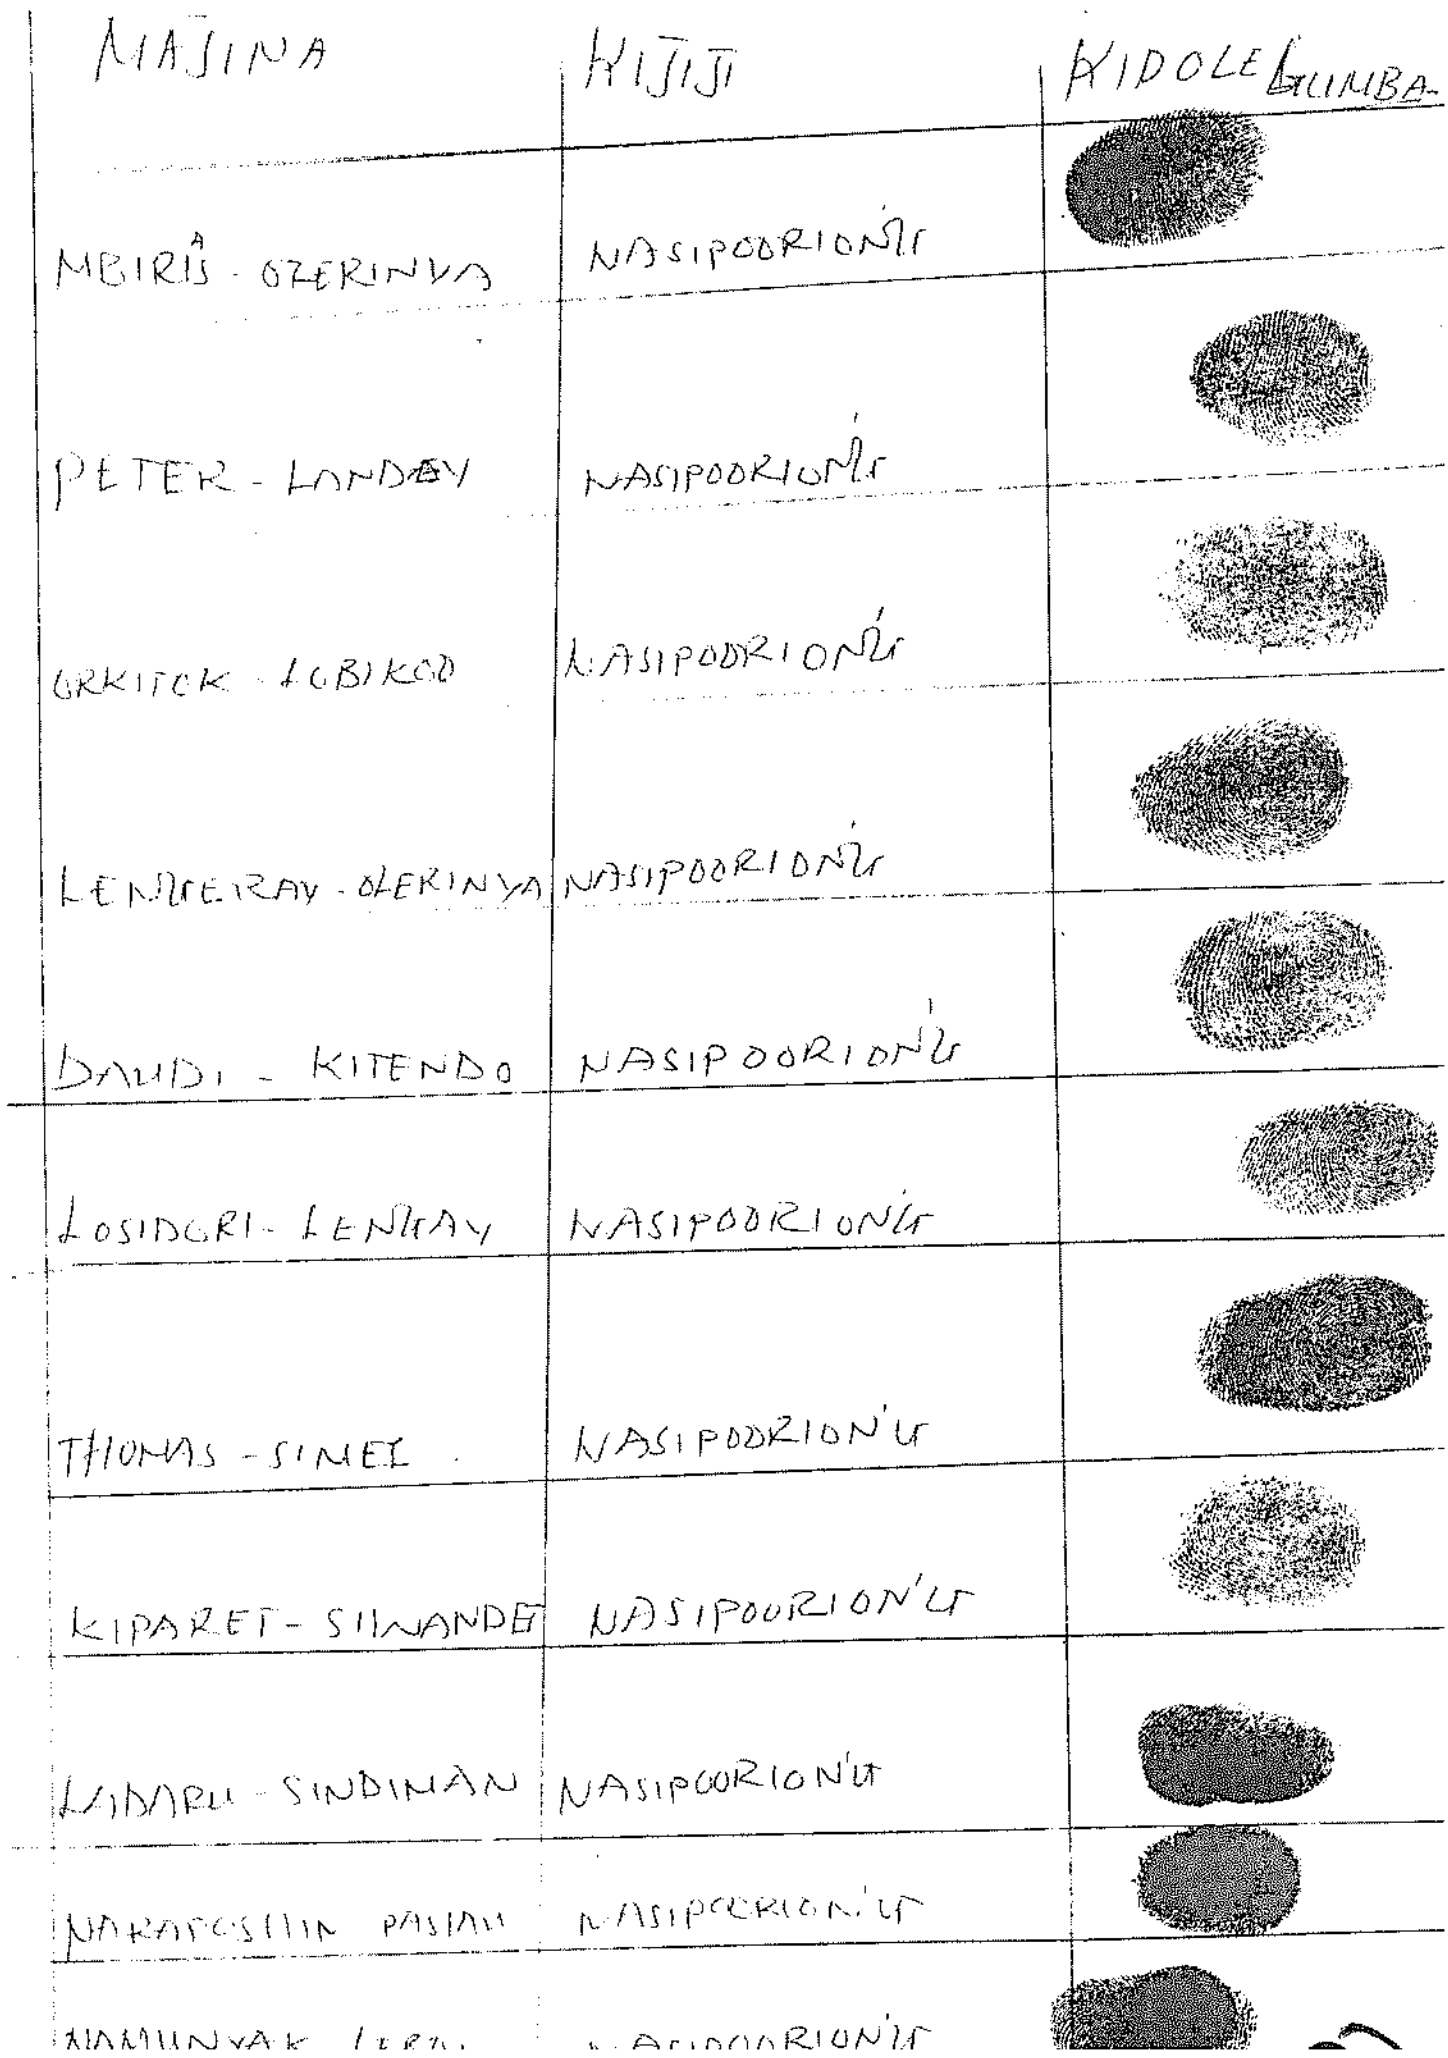 MAJINA KIJIJI KIDOLE GUMBA
MBIRIAS - OLERINYA NASIPOORIONG
PETER - LANDEY NASIPOORIONG
ORKITOK - LOBIKOO NASIPOORIONG
LENGERAY - OLERINYA NASIPOORIONG
DAUDI - KITENDO NASIPOORION'G
LOSIDORI - LENGAY NASIPOORION'G
THOMAS - SIMEL NASIPOORION'G
KIPARET - SIIWANDET NASIPOORION'G
SINDIMAN NASIPOORION'G
NASIPOORION'G
NAMUNYAK NASIPOORION'G